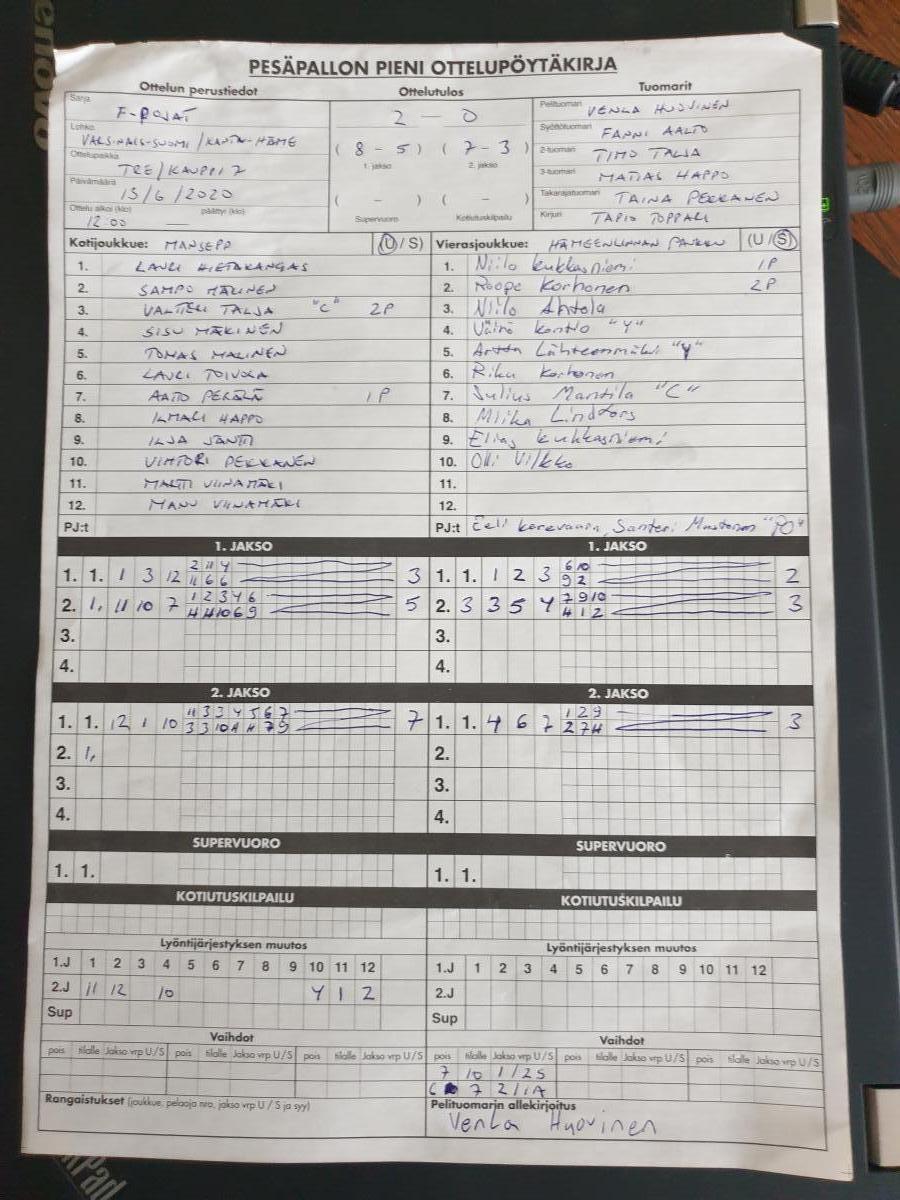 PESÄPALLON PIENI OTTELUPÖYTÄKIRJA
Ottelun perustiedot Ottelutulos Tuomarit
Sarja F-POJAT
Lohko VARSINAIS-SUOMI / KANTA-HÄME
Ottelupaikka TRE / KAUPPI 7
Päivämäärä 13/6/2020
Ottelu alkoi (klo) päättyi (klo)
12.00 —
2 — 0
( 8 - 5 ) ( 7 - 3 )
1. jakso 2. jakso
( - ) ( - )
Supervuoro Kotiutuskilpailu
Pelituomari VENLA HUOVINEN
Syöttötuomari FANNI AALTO
2-tuomari TIMO TALJA
3-tuomari MATIAS HAPPO
Takarajatuomari TAINA PEKKANEN
Kirjuri TAPIO TOPPALI
Kotijoukkue: MANSEPP (U/S)
1. LAURI HIETAKANGAS
2. SAMPO MALINEN
3. VALTTERI TALJA "C" 2P
4. SISU MÄKINEN
5. TOMAS MALINEN
6. LAURI TOIVOLA
7. AATO PERÄLÄ 1P
8. ILMARI HAPPO
9. ILJA JÄNTTI
10. VIHTORI PEKKANEN
11. MARTTI VIINAMÄKI
12. MANU VIINAMÄKI
PJ:t
Vierasjoukkue: HÄMEENLINNAN (U/S)
1. Niilo Kukkasniemi 1P
2. Roope Korhonen 2P
3. Niilo Ahtola
4. Väinö Kontio "Y"
5. Artta Lähteenmäki "Y"
6. Riku Korhonen
7. Julius Mantila "C"
8. Miika Lindfors
9. Elias Kukkasniemi
10. Olli Vilkko
11.
12.
PJ:t Santeri Mustonen "PO"
1. JAKSO
1. 1. 1 3 12 2 11 4 3
11 6 6
2. 1, 11 10 7 1 2 3 4 6 5
4 4 10 6 9
3.
4.
1. JAKSO
1. 1. 1 2 3 6 10 2
9 2
2. 3 3 5 4 7 9 10 3
4 1 2
3.
4.
2. JAKSO
1. 1. 12 1 10 11 3 3 4 5 6 7 7
3 3 10 4 11 7 9
2. 1,
3.
4.
2. JAKSO
1. 1. 4 6 7 1 2 9 3
2 7 4
2.
3.
4.
SUPERVUORO
1. 1.
SUPERVUORO
1. 1.
KOTIUTUSKILPAILU
KOTIUTUSKILPAILU
Lyöntijärjestyksen muutos
1.J 1 2 3 4 5 6 7 8 9 10 11 12
2.J 11 12 10 4 1 2
Sup
Lyöntijärjestyksen muutos
1.J 1 2 3 4 5 6 7 8 9 10 11 12
2.J
Sup
Vaihdot
pois tilalle Jakso vrp U/S pois tilalle Jakso vrp U/S pois tilalle Jakso vrp U/S
Vaihdot
pois tilalle Jakso vrp U/S pois tilalle Jakso vrp U/S pois tilalle Jakso vrp U/S
7 10 1/2S
6 7 2/1A
Rangaistukset (joukkue, pelaaja nro, jakso vrp U / S ja syy)
Pelituomarin allekirjoitus
Venla Huovinen